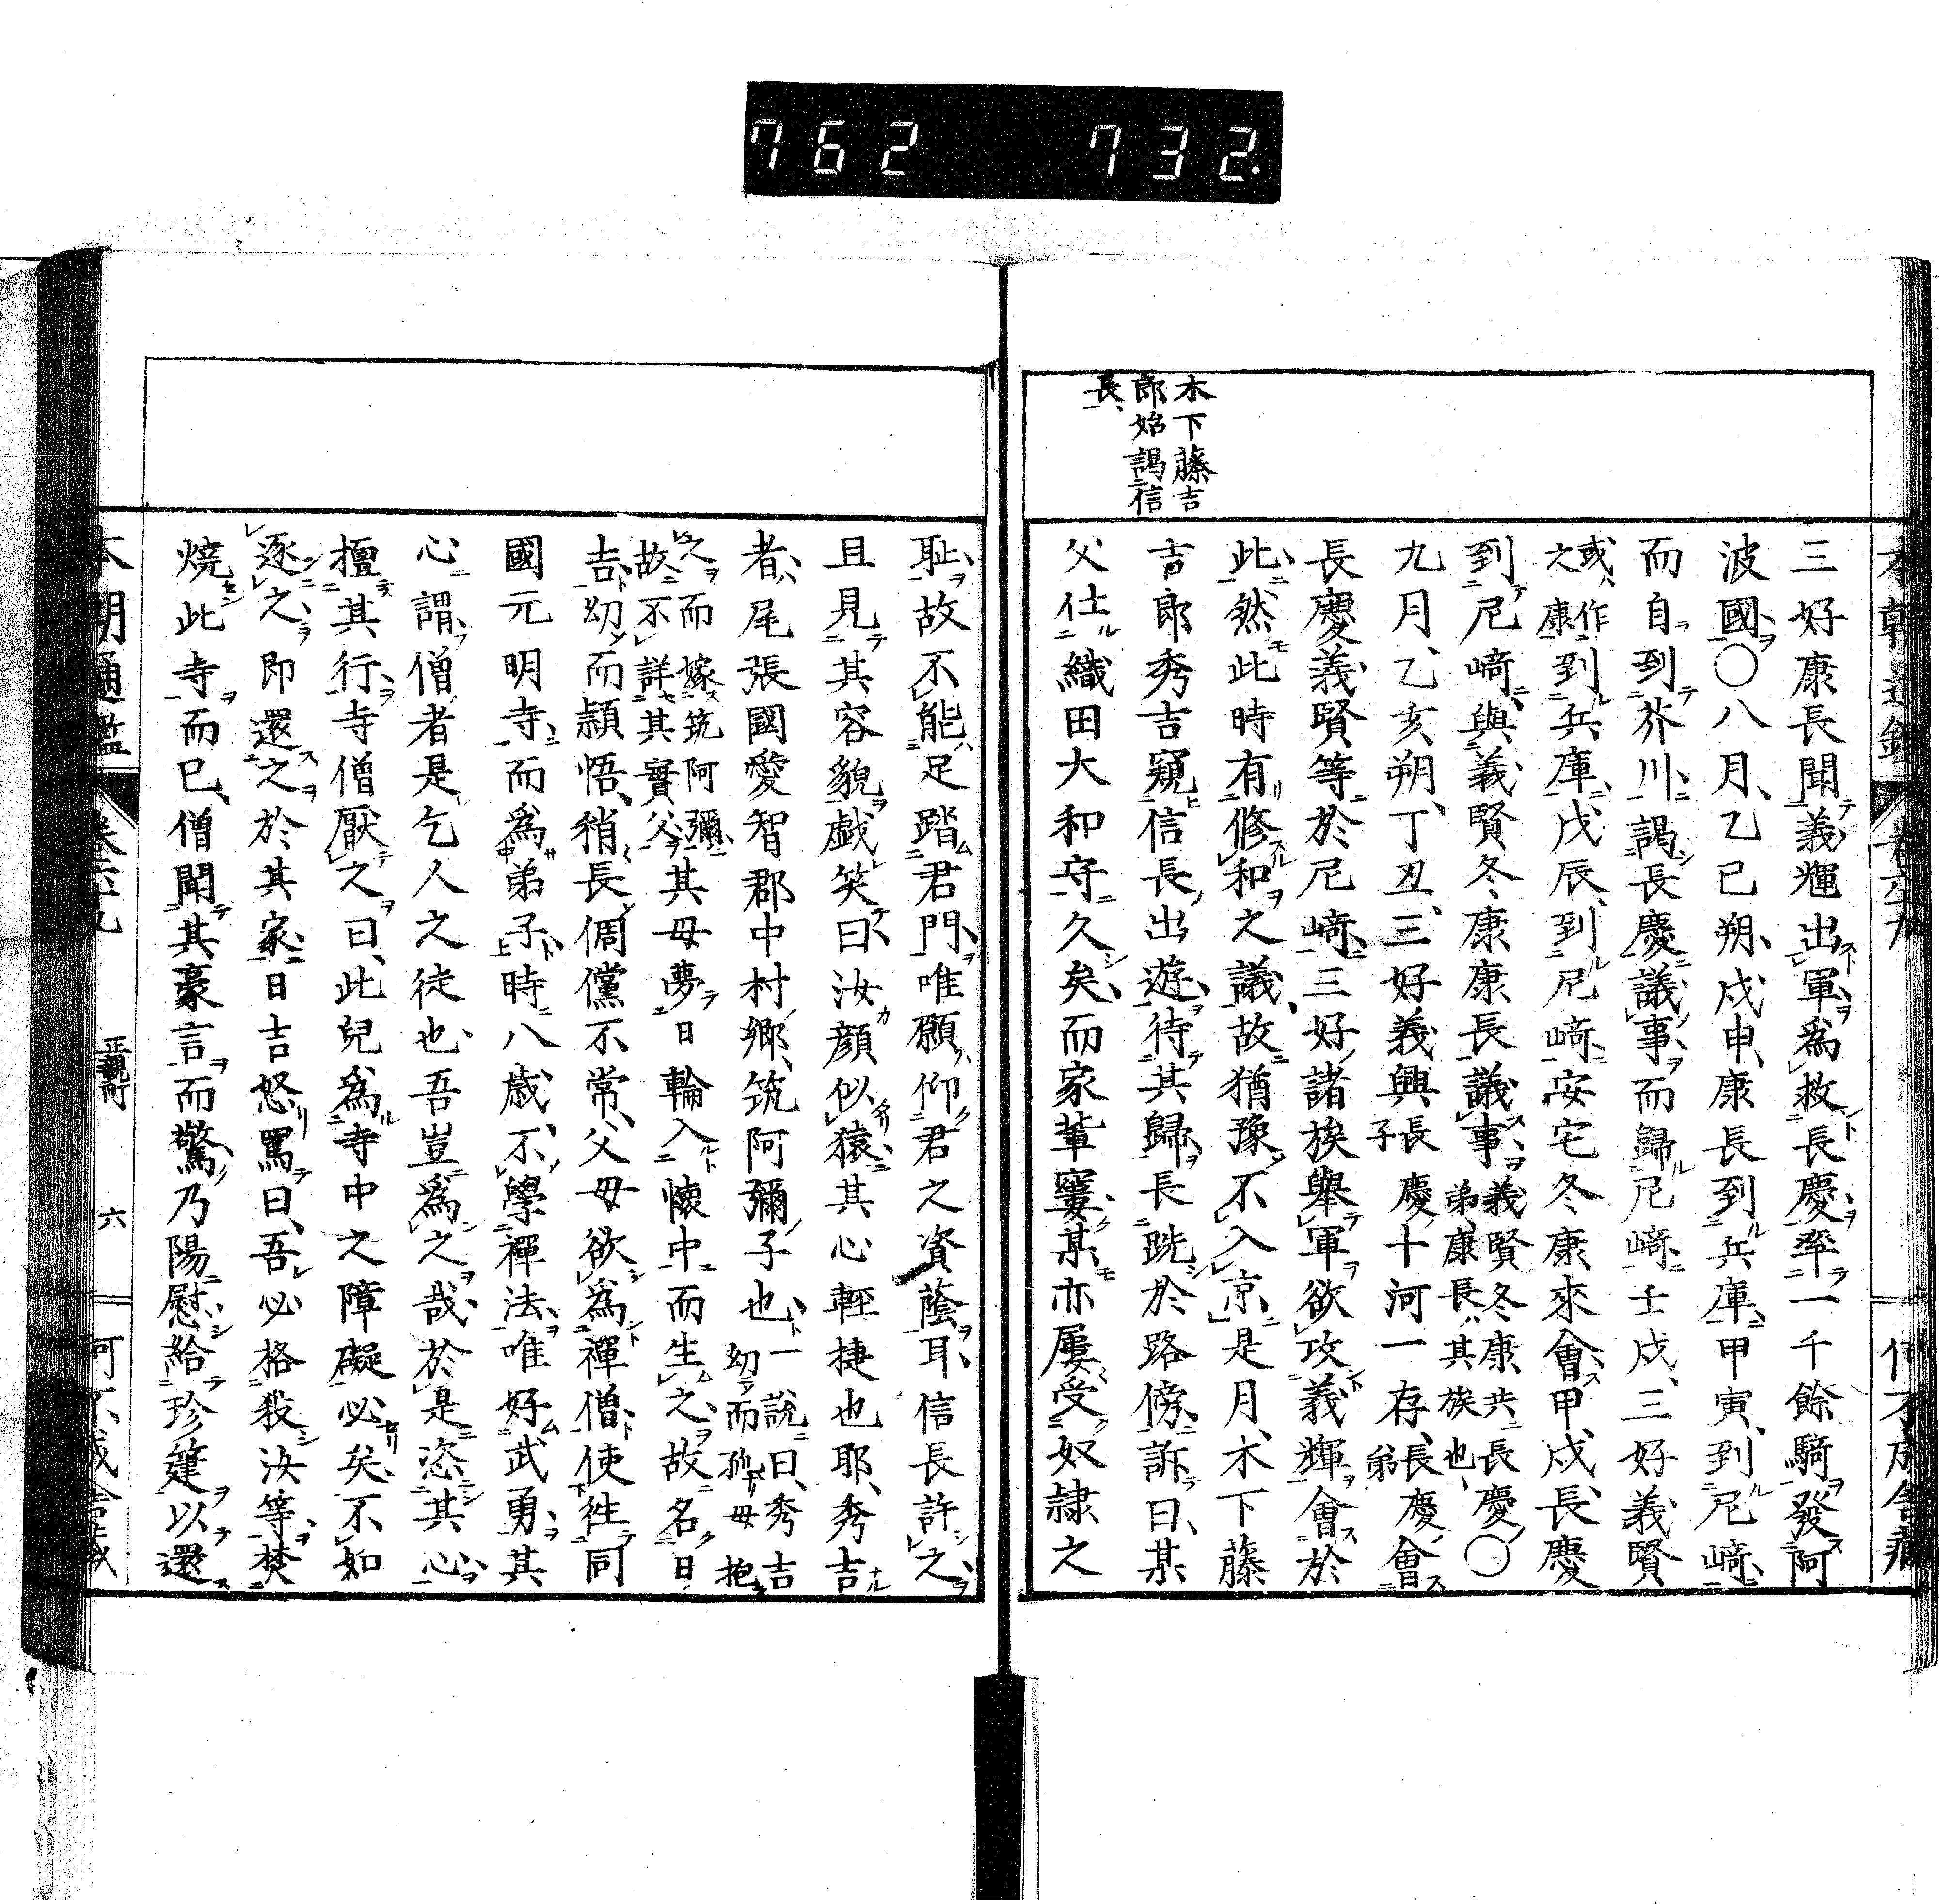 762 732.
木下藤吉
郎始謁信
長
三好康長聞義輝出軍為救長慶率一千餘騎發阿
波國〇八月乙巳朔戊申康長到兵庫甲寅到尼﨑
而自到芥川謁長慶議事而歸尼﨑壬戌三好義賢
或作之康到兵庫戊辰到尼﨑安宅冬康來會甲戌長慶
到尼﨑與義賢冬康康長議事義賢冬康共長慶弟康長其族也〇
九月乙亥朔丁丑三好義興長慶子十河一存長慶弟會
長慶義賢等於尼﨑三好諸族舉軍欲攻義輝會於
此然此時有修和之議故猶豫不入京是月木下藤
吉郎秀吉窺信長出遊待其歸長跣於路傍訴曰某
父仕織田大和守久矣而家輩窶某亦屢受奴隷之
恥故不能足踏君門唯願仰君之資蔭耳信長許之
且見其容貌戯笑曰汝顔似猿其心輕捷也耶秀吉
者尾張國愛智郡中村鄉筑阿彌子也一說曰秀吉幼而孤母抱
之而嫁筑阿彌故不詳其實父其母夢日輪入懐中而生之故名日
吉幼而頴悟稍長倜儻不常父母欲為禪僧使徃同
國元明寺而為弟子時八歲不學禪法唯好武勇其
心謂僧者是乞人之徒也吾豈為之哉於是恣其心
擅其行寺僧厭之曰此兒為寺中之障礙必矣不如
逐之即還之於其家日吉怒罵曰吾必格殺汝等焚
燒此寺而已僧聞其豪言而驚乃陽慰給珍筵以還
本朝通鑑 卷六十九 正親町 六